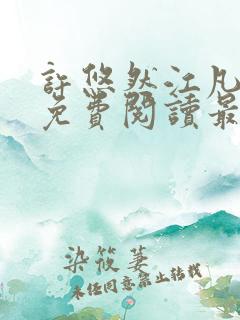 許悠然江凡
免費閱讀最
染筱萋
未經同意禁止轉載